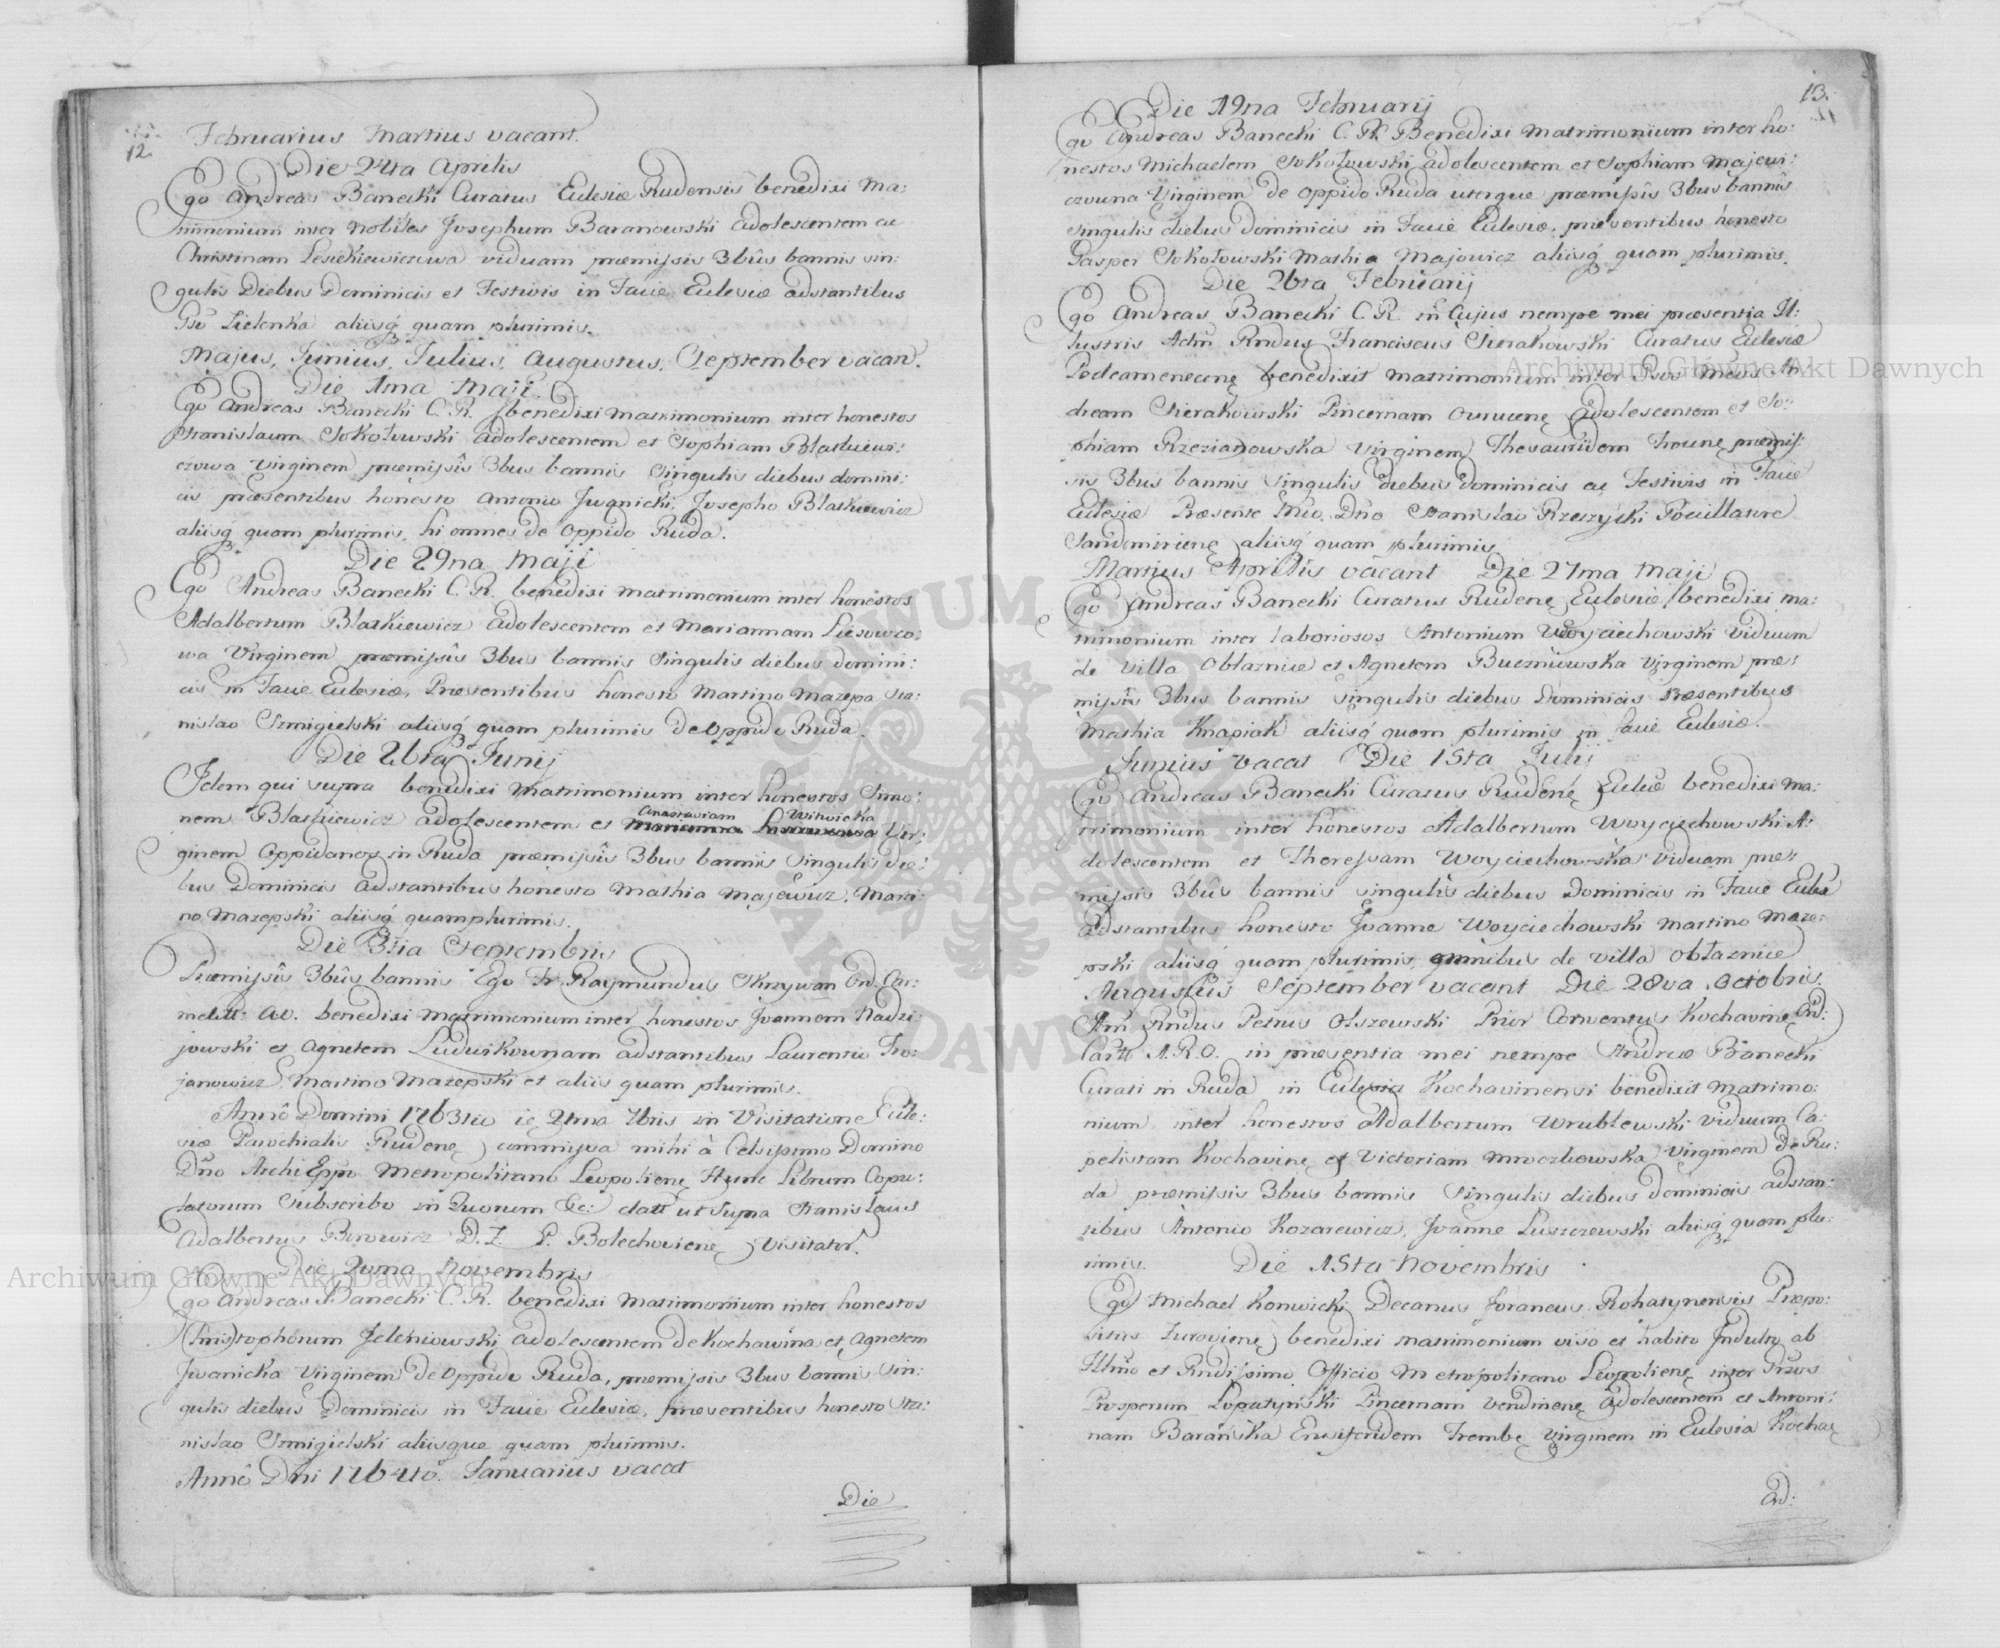 12.
Februarius Martius vacant.
Die 24ta Aprilis
Ego Andreas Banecki Curatus Eclesiæ Rudensis benedixi Ma:
trimonium inter Nobiles Josephum Baranowski Adolescentem ac
Christinam Lesiekiewiczowa viduam præmissis 3bûs bannis sin:
gulis Diebus Dominicis et Festivis in Facie Eclesiæ adstantibus
Gso Zielenka aliisq quam plurimis.
Majus, Junius, Julius, Augustus, September vacan.
Die 1ma Maji
Ego Andreas Banecki C. R. benedixi Matrimonium inter honestos
Stanislaum Sokołowski Adolescentem et Sophiam Blatkiewi:
czowa Virginem præmissîs 3bus bannis singulis diebus domini:
cis præsentibus honesto Antonio Jwanicki, Josepho Blatkiewicz
aliisq quam plurimis, hi omnes de Oppido Ruda.
Die 29na Maji
Ego Andreas Banecki C. R. benedixi Matrimonium inter honestos
Adalbertum Blatkiewicz Adolescentem et Mariannam Lisowco:
wa Virginem præmissîs 3bus bannis singulis diebus domini:
cis in Facie Eclesiæ, Præsentibus honesto Martino Mazepa Sta:
nislao Szmigielski aliisq quam plurimis de Oppido Ruda.
Die 26ta Junij
Idem qui supra benedixi Matrimonium inter honestos Simo:
Anastasiam Witwicka
nem Blatkiewicz adolescentem et Vir:
ginem Oppidanos in Ruda præmissîs 3bus bannis singulis die:
bus Dominicis adstantibus honesto Mathia Majewicz, Marti:
no Mazepski aliisq quamplurimis.
Die 3tia Septembris
Præmissîs 3bûs bannis Ego Fr. Raymundus Skrzywan Ord. Car:
melitt: benedixi Matrimonium inter honestos Joannem Nadzi
jowski et Agnetem Ludwikownam adstantibus Laurentio Tro:
janowicz, Martino Mazepski et aliis quam plurimis.
Annô Domini 1763tio 7bris in Visitatione Ecle:
siæ Parochialis Rudenę commissa mihi à Celsissimo Domino
Dño Archi Eppo Metropolitano Leopolienę Hunc Librum Copu:
latorum Subscribo in Quorum &c: datt ut Supra Stanislaus
Adalbertus Borowicz D. Z. P. Bolechovienę Visitator.
Die 2oma Novembris
Ego Andreas Banecki C. R. benedixi Matrimonium inter honestos
Christophorum Jeleniowski adolescentem de Kochawina et Agnetem
Jwanicka Virginem de Oppido Ruda, præmissis 3bus bannis sin:
gulis diebus Dominicis in Facie Eclesiæ, præsentibus honesto Sta:
nislao Szmigielski aliisque quam plurimis.
Annô Dni 1764to. Januarius vacat
Die
13.
Die 19na Februarij
Ego Andreas Banecki C. R. Benedixi Matrimonium inter ho:
nestos Michaelem Sokołowski adolescentem et Sophiam Majewi:
czowna Virginem de Oppido Ruda uterque præmissîs 3bus bannîs
singulis diebus dominicis in Facie Eclesiæ, præsentibus honesto
Gasper Sokołowski Mathia Majowicz aliisq quam plurimis.
Die 26ta Februarij
Ego Andreas Banecki C. R. in Cujus nempe mei præsentia Il:
lustris Adm Rndus Franciscus Sierakowski Curatus Eclesiæ
Podcamenecnę benedixit Matrimonium inter Gsos An:
dream Sierakowski Pincernam Owrucenę Adolescentem et So:
phiam Rzezianowska Virginem Thesauridem præmis:
sis 3bus bannis singulis diebus Dominicis ac Festivis in Facie
Eclesiæ Præsente Mco. Dño Stanislao Rzeszycki Pocillatore
Sandomirienę aliisq quam plurimis
Martius Aprilis vacant Die 27ma Maji
Ego Andreas Banecki Curatus Rudenę Eclesiæ benedixi ma:
trimonium inter laboriosos Antonium Woyciechowski Viduum
de Villa Obłaznice et Agnetem Buczniowska Virginem præ:
missis 3bus bannis singulis diebus Dominicis Præsentibus
Mathia Knapiak aliisq quam plurimis in facie Eclesiæ.
Junius vacat Die 15ta Julij
Ego Andreas Banecki Curatus Rudenę Ecliæ benedixi Ma:
trimonium inter honestos Adalbertum Woyciechowski A:
dolescentem et Theressam Woyciechowska viduam præ:
missis 3bûs bannis singulis diebus Dominicis in Facie Eclæ
adstantibus honesto Joanne Woyciechowski Martino Maze:
pski aliisq quam plurimis, omnibus de villa Obłaznice
Augustus September vacant Die 28va Octobris.
Adm Rndus Petrus Olszewski Prior Conventus Kochavinę Ord:
Carlt A. R. O. in præsentia mei nempe Andreæ Banecki
Curati in Ruda in Eclesia Kochavinensi benedixit Matrimo:
nium inter honestos Adalbertum Wrublewski Viduum Ca:
pelistam Kochavinę et Victoriam Mroczkowska Virginem de Ru:
da præmissis 3bus bannis singulis diebus dominicis adstan:
tibus Antonio Kozarewicz, Joanne Luszczewski aliisq quam plu:
rimis. Die 15ta Novembris
Ego Michael Konwicki Decanus Foraneus Rohatynensis Præpo:
situs Zurovienę benedixi Matrimonium viso et habito Indulto ab
Illmo et Rndissimo Officio Metropolitano Leopolienę inter Gñsos
Prosperum Lopatyński Pincernam Vendinenę Adolescentem et Antoni:
nam Barańska Ensiferidem Trembę Virginem in Eclesia Kochaę
Ord:
Archiwum Główne Akt Dawnych
Archiwum Główne Akt Dawnych
ARCHIWUM GŁÓWNE AKT DAWNYCH